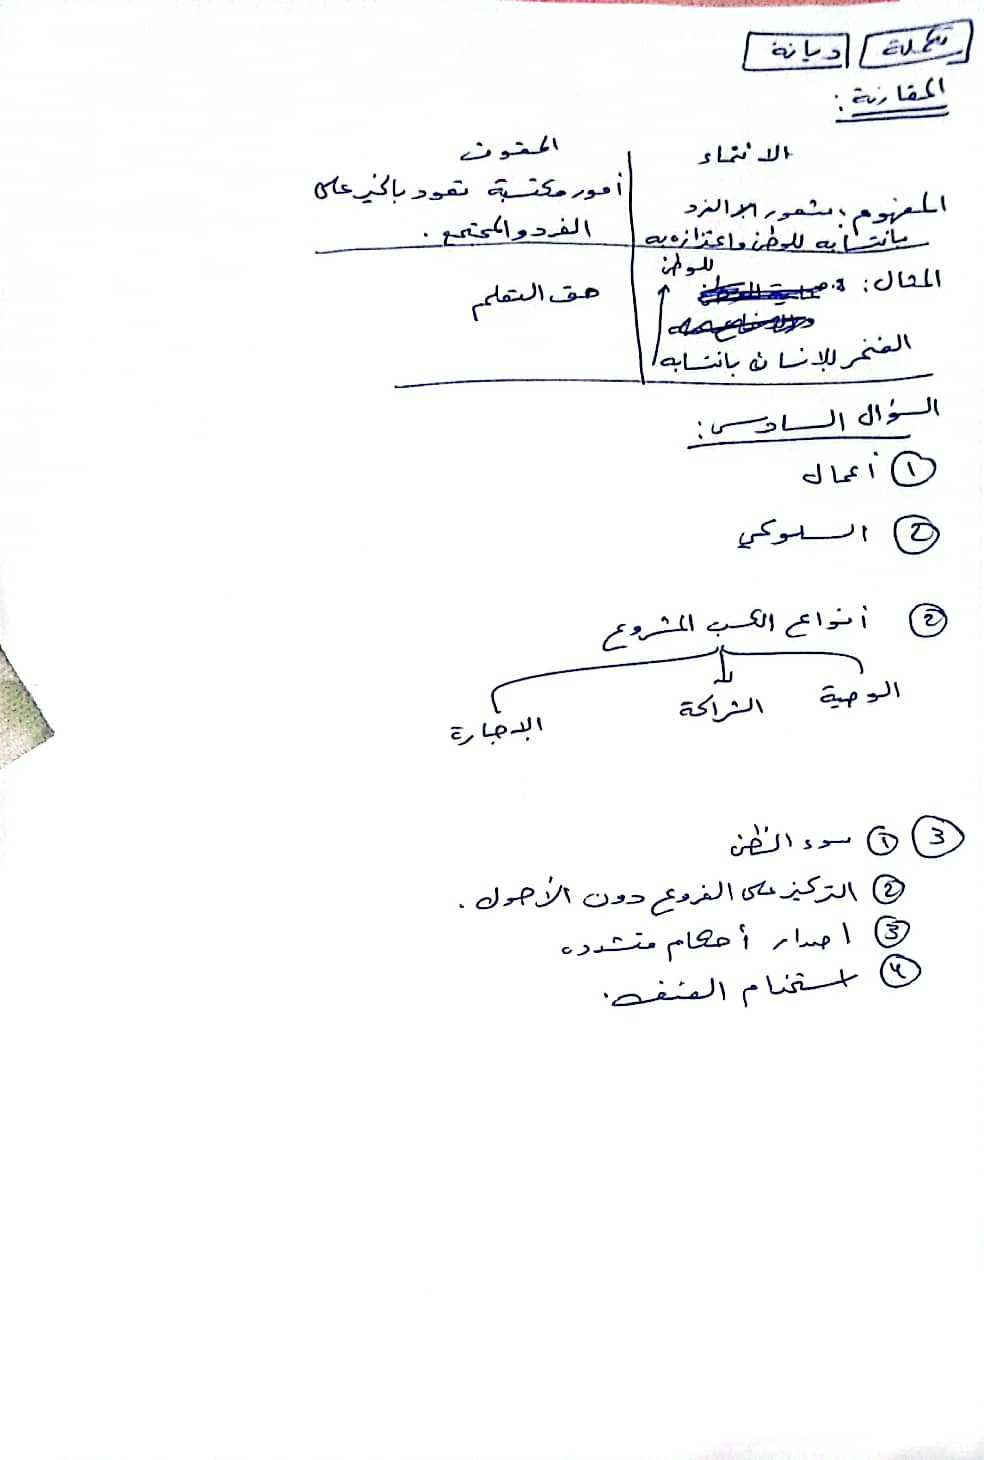 تكملة ديانة
المقارنة:
الانتماء
الحقوق
المفهوم: شعور الفرد
بانتسابه للوطن واعتزازه به
أمور مكتسبة تعود بالخير على
الفرد والمجتمع.
المثال:
للوطن
الفخر للإنسان بانتسابه
حق التعلم
السؤال السادس:
١ أعمال
2 السلوكي
2 أنواع الكسب المشروع
الوصية
الشراكة
الإجارة
3 ١ سوء الظن
2 التركيز على الفروع دون الأصول.
3 اصدار أحكام متشدده
4 استخدام العنف.